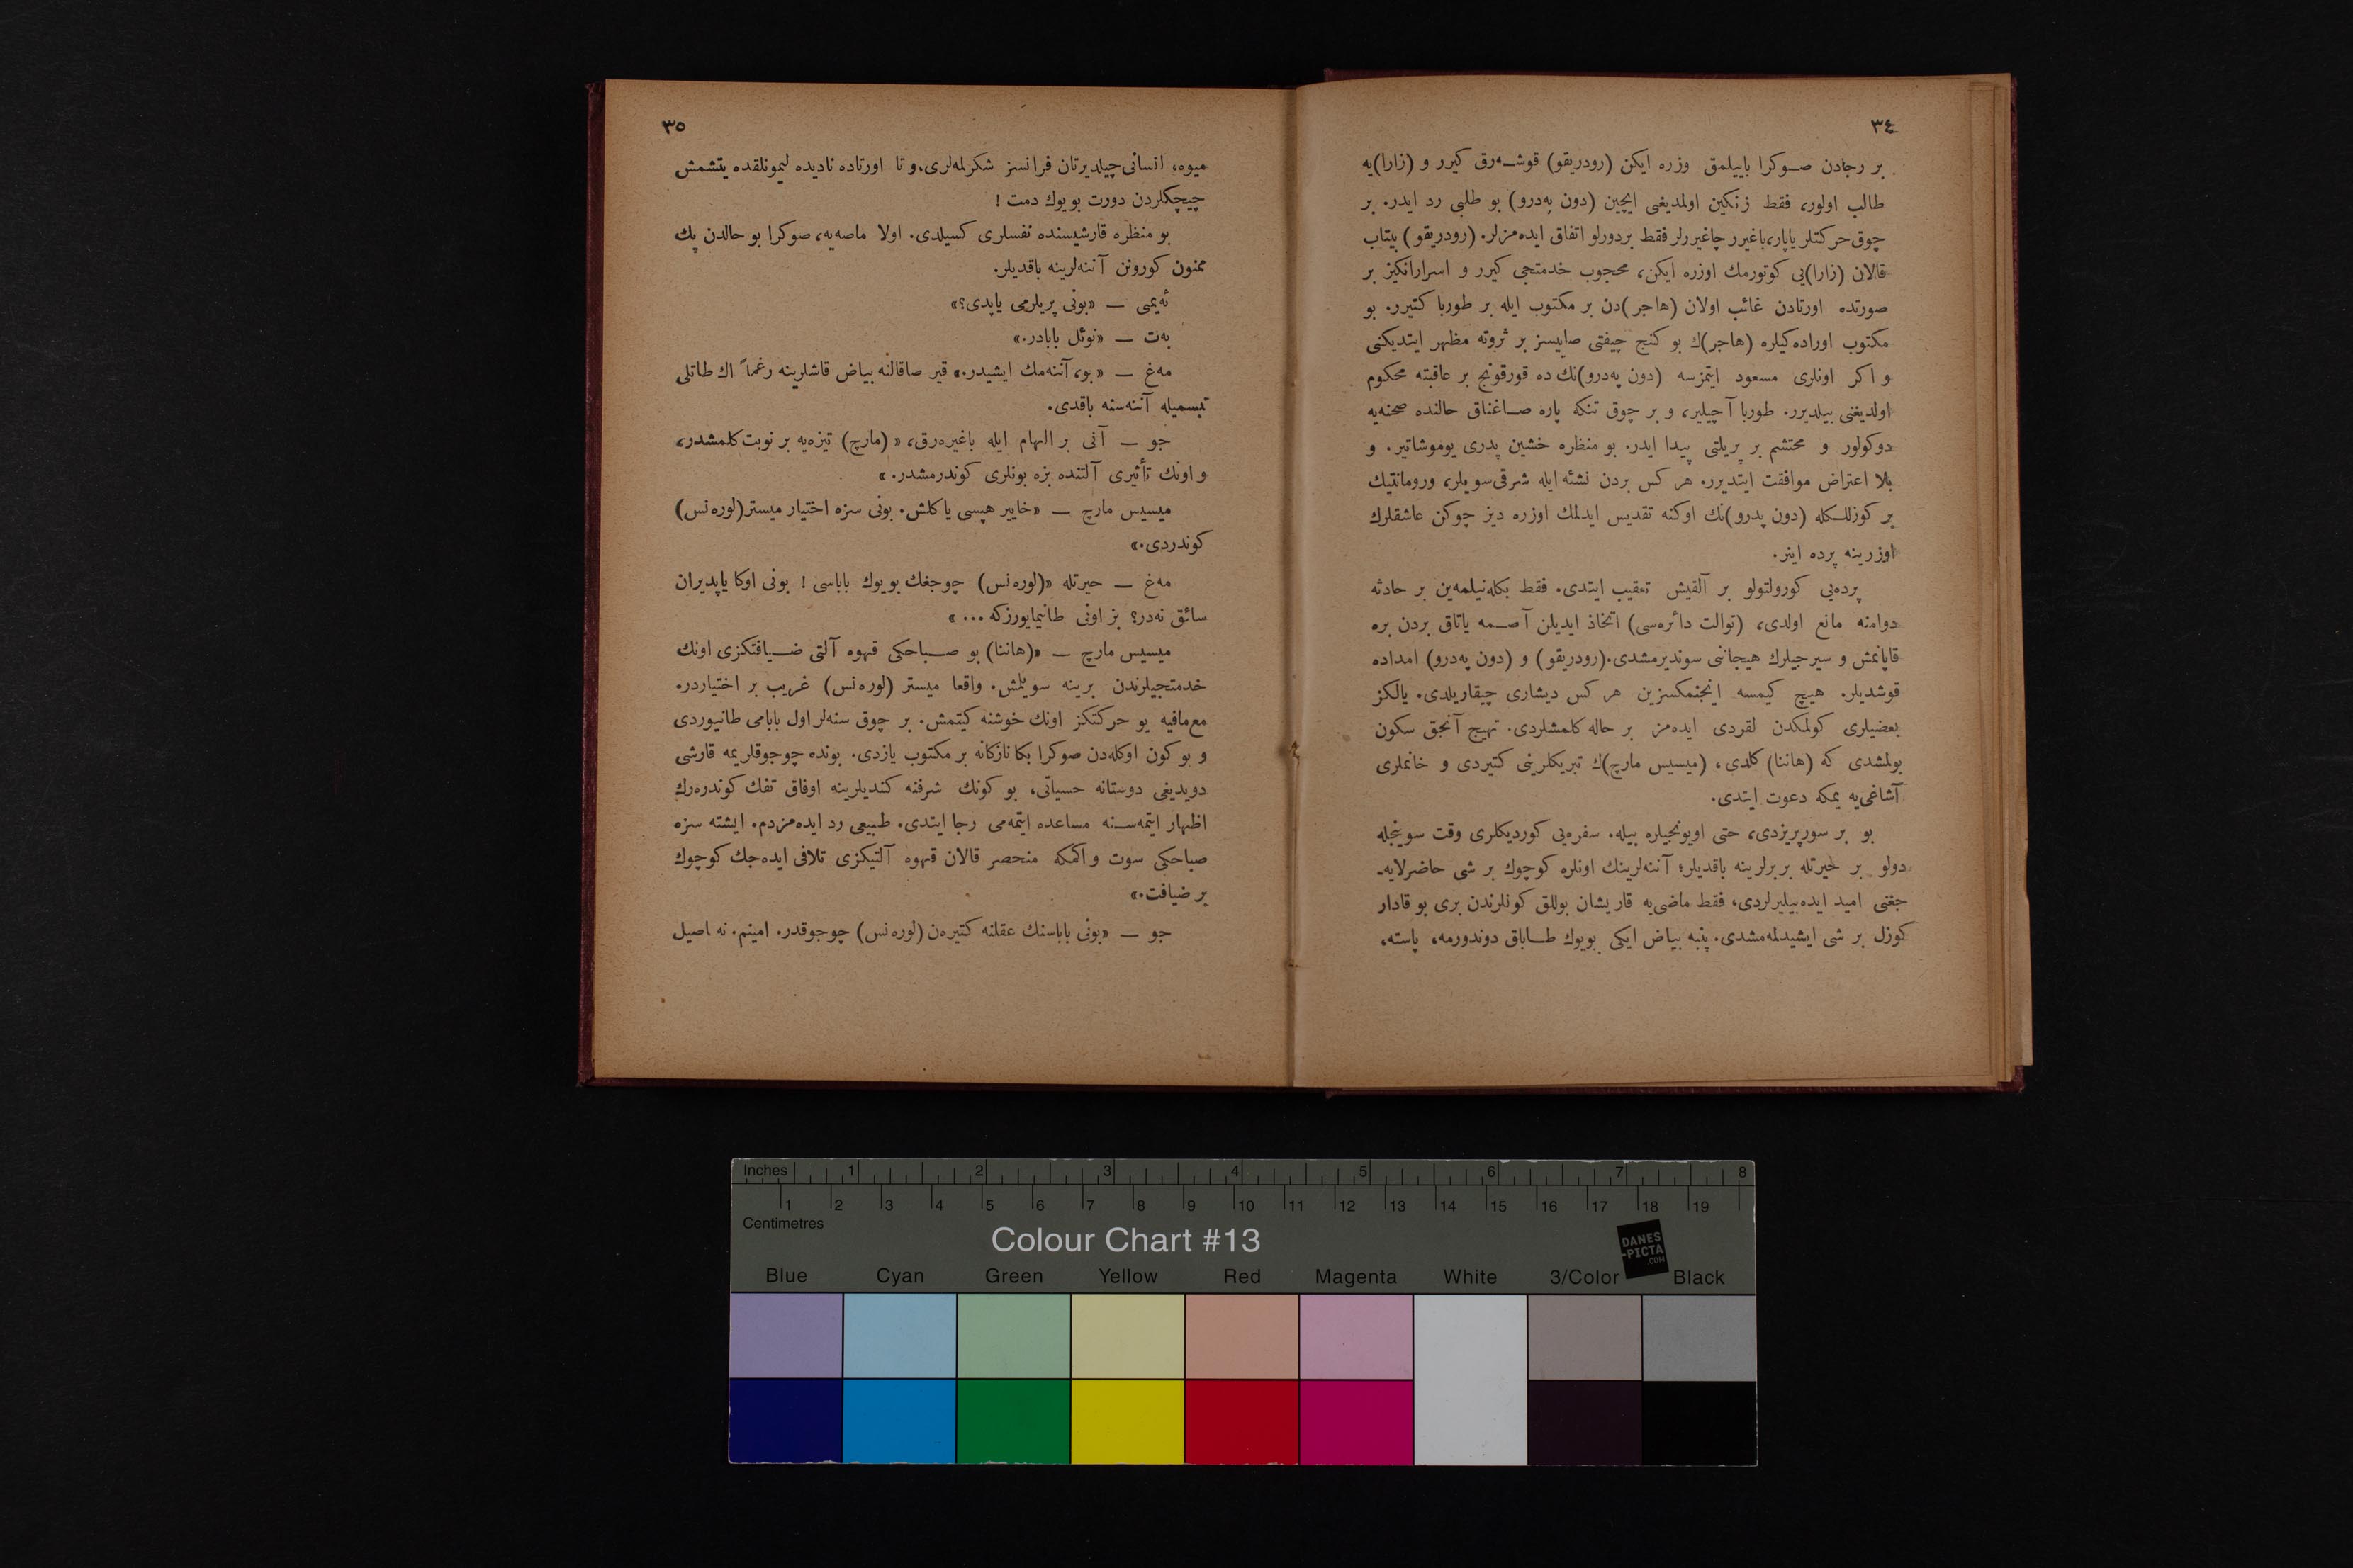 ٣٤
بر رجادن صوكرا باييلمق وزره ايكن (رودريقو) قوشه‌رق كيرر و (زارا)يه
طالب اولور، فقط زنكين اولمديغى ايچين (دون په‌درو) بو طلبى رد ايدر. بر
چوق حركتلر ياپار، باغيرر چاغيررلر فقط بردورلو اتفاق ايده‌مزلر. (رودريقو) بيتاب
قالان (زارا)يى كوتورمك اوزره ايكن، محجوب خدمتجى كيرر و اسرارانكيز بر
صورتده اورتادن غائب اولان (هاجر)دن بر مكتوب ايله بر طوربا كتيرر. بو
مكتوب اوراده‌كيلره (هاجر)ك بو كنج چيفتى صاييسز بر ثروته مظهر ايتديكنى
و اكر اونلرى مسعود ايتمزسه (دون په‌درو)نك ده قورقونج بر عاقبته محكوم
اولديغنى بيلديرر. طوربا آچيلير، و بر چوق تنكه پاره صاغناق حالنده صحنه‌يه
دوكولور و محتشم بر پريلتى پيدا ايدر. بو منظره خشين پدرى يوموشاتير. و
بلا اعتراض موافقت ايتديرر. هر كس بردن نشئه ايله شرقى سويلر، ورومانتيك
بر كوزللكله (دون پدرو)نك اوكنه تقديس ايدلمك اوزره ديز چوكن عاشقلرك
اوزرينه پرده اينر.
پرده‌يى كورولتولو بر آلقيش تعقيب ايتدى. فقط بكله‌نيلمه‌ين بر حادثه
دوامنه مانع اولدى، (توالت دائره‌سى) اتخاذ ايديلن آصمه ياتاق بردن بره
قاپانمش و سيرجيلرك هيجاننى سونديرمشدى. (رودريقو) و (دون په‌درو) امداده
قوشديلر. هيچ كيمسه اينجنمكسزين هر كس ديشارى چيقاريلدى. يالكز
بعضيلرى كولمكدن لقردى ايده‌مز بر حاله كلمشلردى. تهيج آنجق سكون
بولمشدى كه (هاننا) كلدى، (ميسيس مارچ)ك تبريكلرينى كتيردى و خانملرى
آشاغى‌يه يمكه دعوت ايتدى.
بو بر سورپريزدى، حتى اويونجيلره بيله. سفره‌يى كورديكلرى وقت سوينجله
دولو بر حيرتله بربرلرينه باقديلر؛ آننه‌لرينك اونلره كوچوك بر شى حاضرلايه‌ـ
جغنى اميد ايده‌بيليرلردى، فقط ماضى‌يه قاريشان بوللق كونلرندن برى بو قادار
كوزل بر شى ايشيدلمه‌مشدى. پنبه بياض ايكى بويوك طاباق دوندورمه، پاسته،
٣٥
ميوه، انسانى چيلديرتان فرانسز شكرلمه‌لرى، و تا اورتاده ناديده ليمونلقده يتشمش
چيچكلردن دورت بويوك دمت !
بو منظره قارشيسنده نفسلرى كسيلدى. اولا ماصه‌يه، صوكرا بو حالدن پك
ممنون كورونن آننه‌لرينه باقديلر.
ئه‌يمى — «بونى پريلرمى ياپدى؟»
به‌ت — «نوئل بابادر.»
مه‌غ — «بو، آننه‌مك ايشيدر.» قير صاقالنه بياض قاشلرينه رغماً اك طاتلى
تبسميله آننه‌سنه باقدى.
جو — آنى بر الهام ايله باغيره‌رق، «(مارچ) تيزه‌يه بر نوبت كلمشدر،
و اونك تأثيرى آلتنده بزه بونلرى كوندرمشدر.»
ميسيس مارچ — «خايير هپسى ياكلش. بونى سزه اختيار ميستر (لوره‌نس)
كوندردى.»
مه‌غ — حيرتله «(لوره‌نس) چوجغك بويوك باباسى ! بونى اوكا ياپديران
سائق نه‌در؟ بز اونى طانيمايورزكه ... »
ميسيس مارچ — «(هاننا) بو صباحكى قهوه آلتى ضيافتكزى اونك
خدمتجيلرندن برينه سويلمش. واقعا ميستر (لوره‌نس) غريب بر اختياردر.
مع‌مافيه بو حركتكز اونك خوشنه كيتمش. بر چوق سنه‌لر اول بابامى طانييوردى
و بو كون اوكله‌دن صوكرا بكا نازكانه بر مكتوب يازدى. بونده چوجوقلريمه قارشى
دويديغى دوستانه حسياتى، بو كونك شرفنه كنديلرينه اوفاق تفك كوندره‌رك
اظهار ايتمه‌سنه مساعده ايتمه‌مى رجا ايتدى. طبيعى رد ايده‌مزدم. ايشته سزه
صباحكى سوت و اكمكه منحصر قالان قهوه آلتيكزى تلافى ايده‌جك كوچوك
بر ضيافت.»
جو — «بونى باباسنك عقلنه كتيره‌ن (لوره‌نس) چوجوقدر. امينم. نه اصيل
Inches 1 2 3 4 5 6 7 8
1 2 3 4 5 6 7 8 9 10 11 12 13 14 15 16 17 18 19
Centimetres
Colour Chart #13
DANES
-PICTA
.COM
Blue Cyan Green Yellow Red Magenta White 3/Color Black